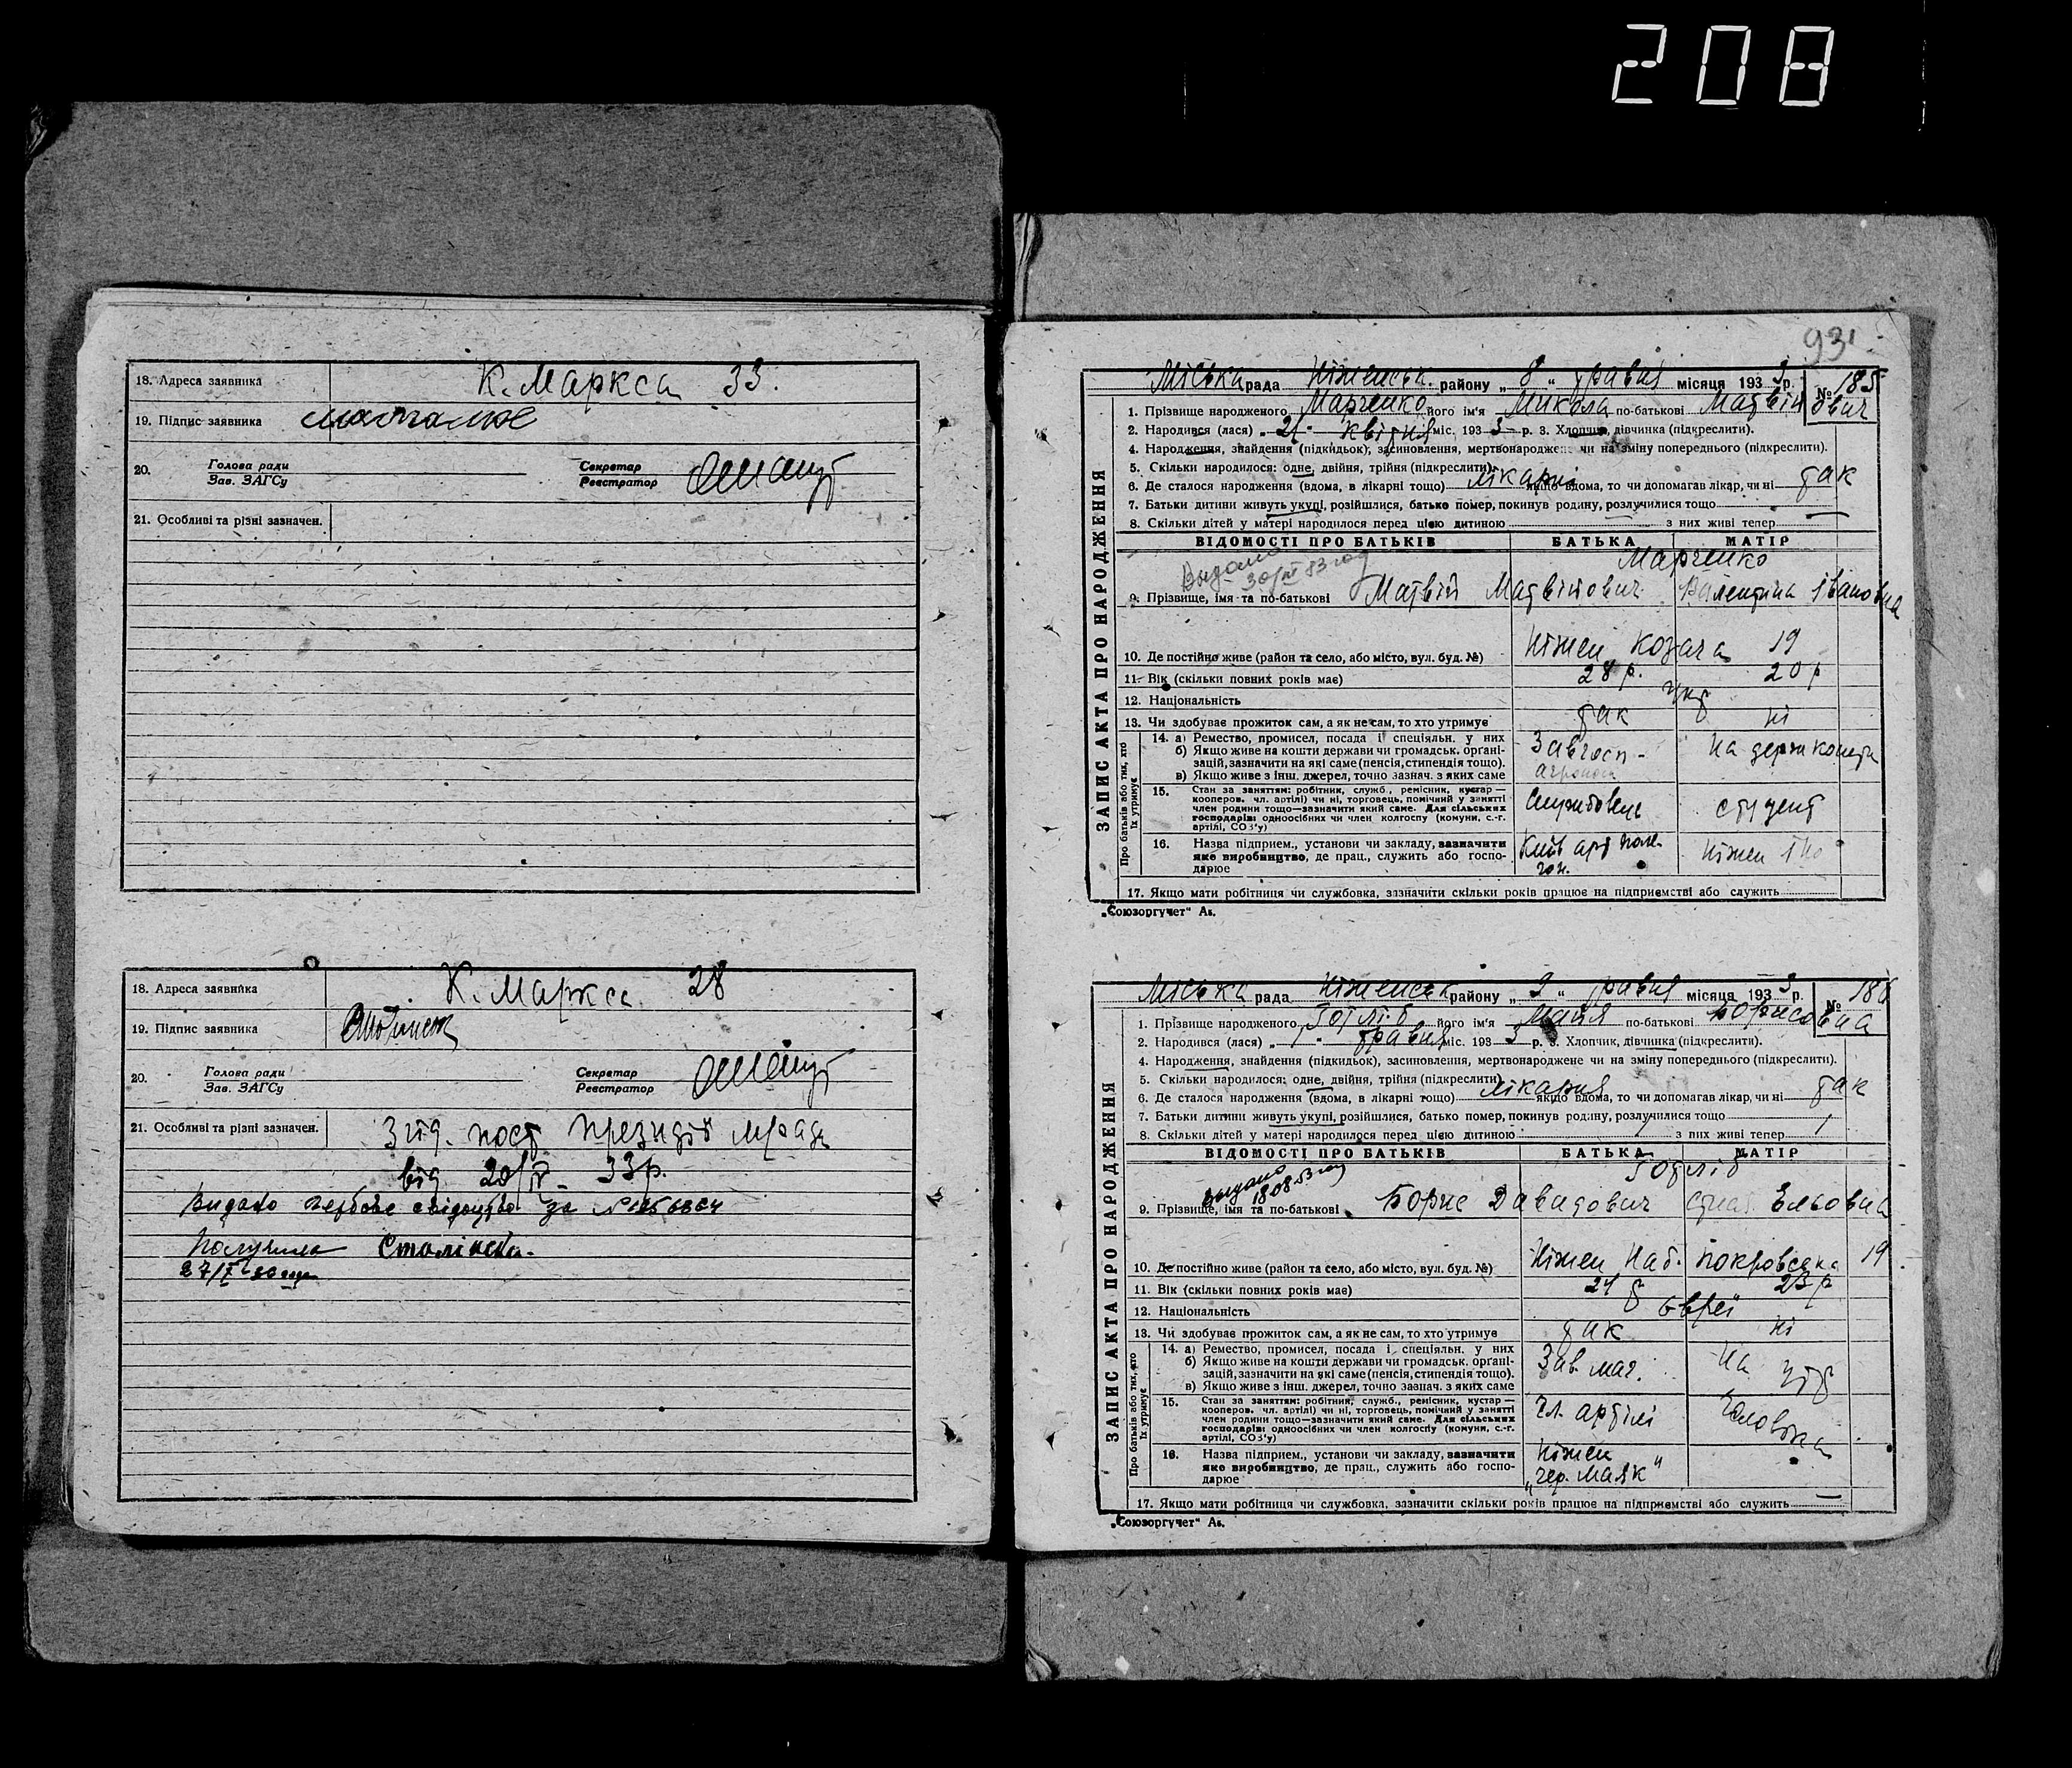 208
18. Адреса заявника К. Маркса 33.
19. Підпис заявника
20. Голова ради Секретар
Зав. ЗАГСу Реєстратор
21. Особливі та різні зазначен.
18. Адреса заявника К. Маркса 28
19. Підпис заявника
20. Голова ради Секретар
Зав. ЗАГСу Реєстратор
21. Особливі та різні зазначен. Згід. пост президії м/ради
від 20/IV - 33р.
Видано свідоцтво за №
Получила
93
Міська рада Ніженськ. району „ 8 “ травня місяця 193 3 р. № 185
1. Прізвище народженого Марченко його ім'я Микола по-батькові Матвійович
2. Народився (лася) „ 21 “ квітня міс. 193 3 р. 3. Хлопчик, дівчинка (підкреслити).
4. Народження, знайдення (підкидьок), засиновлення, мертвонароджене чи на зміну попереднього (підкреслити).
5. Скільки народилося: одне, двійня, трійня (підкреслити).
6. Де сталося народження (вдома, в лікарні тощо) лікарні якщо вдома, то чи допомагав лікар, чи ні так
7. Батьки дитини живуть укупі, розійшлися, батько помер, покинув родину, розлучилися тощо
8. Скільки дітей у матері народилося перед цією дитиною з них живі тепер
ЗАПИС АКТА ПРО НАРОДЖЕННЯ
ВІДОМОСТІ ПРО БАТЬКІВ БАТЬКА МАТІР
Марченко
Выдано
9. Прізвище, імя та по-батькові Матвій Матвійович Валентина Івановна
10. Де постійно живе (район та село, або місто, вул. буд. №) Ніжен Козача 19
11. Вік (скільки повних років має) 28 р. 20 р
12. Національність укр
13. Чи здобуває прожиток сам, а як не сам, то хто утримує так ні
Про батьків або тих, хто їх утримує
14. а) Ремество, промисел, посада і спеціяльн. у них Завгосп-
б) Якщо живе на кошти держави чи громадськ. органі- На держ кошти
зацій, зазначити на які саме (пенсія, стипендія тощо). агроном
в) Якщо живе з інш. джерел, точно зазнач. з яких саме
15. Стан за заняттям: робітник, служб., ремісник, кустар —
кооперов. чл. артілі) чи ні, торговець, помічний у занятті Службовець студент
член родини тощо—зазначити який саме. Для сільських
господарів: одноосібних чи член колгоспу (комуни, с.-г.
артілі, СОЗ'у)
16. Назва підприєм., установи чи закладу, зазначити Київ арт полі- Ніжен ІНО
яке виробництво, де прац., служить або госпо- гон.
дарює
17. Якщо мати робітниця чи службовка, зазначити скільки років працює на підприємстві або служить
„Союзоргучет“ Аз.
Міська рада Ніженськ району „ 9 “ травня місяця 193 3 р. № 186
1. Прізвище народженого Готліб його ім'я Майя по-батькові Борисовна
2. Народився (лася) „ 1 “ травня міс. 193 3 р. 3. Хлопчик, дівчинка (підкреслити).
4. Народження, знайдення (підкидьок), засиновлення, мертвонароджене чи на зміну попереднього (підкреслити).
5. Скільки народилося: одне, двійня, трійня (підкреслити)
6. Де сталося народження (вдома, в лікарні тощо) лікарня якщо вдома, то чи допомагав лікар, чи ні так
7. Батьки дитини живуть укупі, розійшлися, батько помер, покинув родину, розлучилися тощо
8. Скільки дітей у матері народилося перед цією дитиною з них живі тепер
ЗАПИС АКТА ПРО НАРОДЖЕННЯ
ВІДОМОСТІ ПРО БАТЬКІВ БАТЬКА МАТІР
Готліб
выдано
18 08 53 год
9. Прізвище, імя та по-батькові Борис Давидович Ельовна
10. Де постійно живе (район та село, або місто, вул. буд. №) Ніжен Наб. Покровська 19
11. Вік (скільки повних років має) 24 р 23 р
12. Національність євреї
13. Чи здобуває прожиток сам, а як не сам, то хто утримує так ні
Про батьків або тих, хто їх утримує
14. а) Ремество, промисел, посада і спеціяльн. у них Зав. маг. На утр
б) Якщо живе на кошти держави чи громадськ. органі-
зацій, зазначити на які саме (пенсія, стипендія тощо).
в) Якщо живе з інш. джерел, точно зазнач. з яких саме
15. Стан за заняттям: робітник, служб., ремісник, кустар —
кооперов. чл. артілі) чи ні, торговець, помічний у занятті чл. артілі чоловіка
член родини тощо—зазначити який саме. Для сільських
господарів: одноосібних чи член колгоспу (комуни, с.-г.
артілі, СОЗ'у)
16. Назва підприєм., установи чи закладу, зазначити Ніжен
яке виробництво, де прац., служить або госпо- „чер. Маяк“
дарює
17. Якщо мати робітниця чи службовка, зазначити скільки років працює на підприємстві або служить
„Союзоргучет“ Аз.